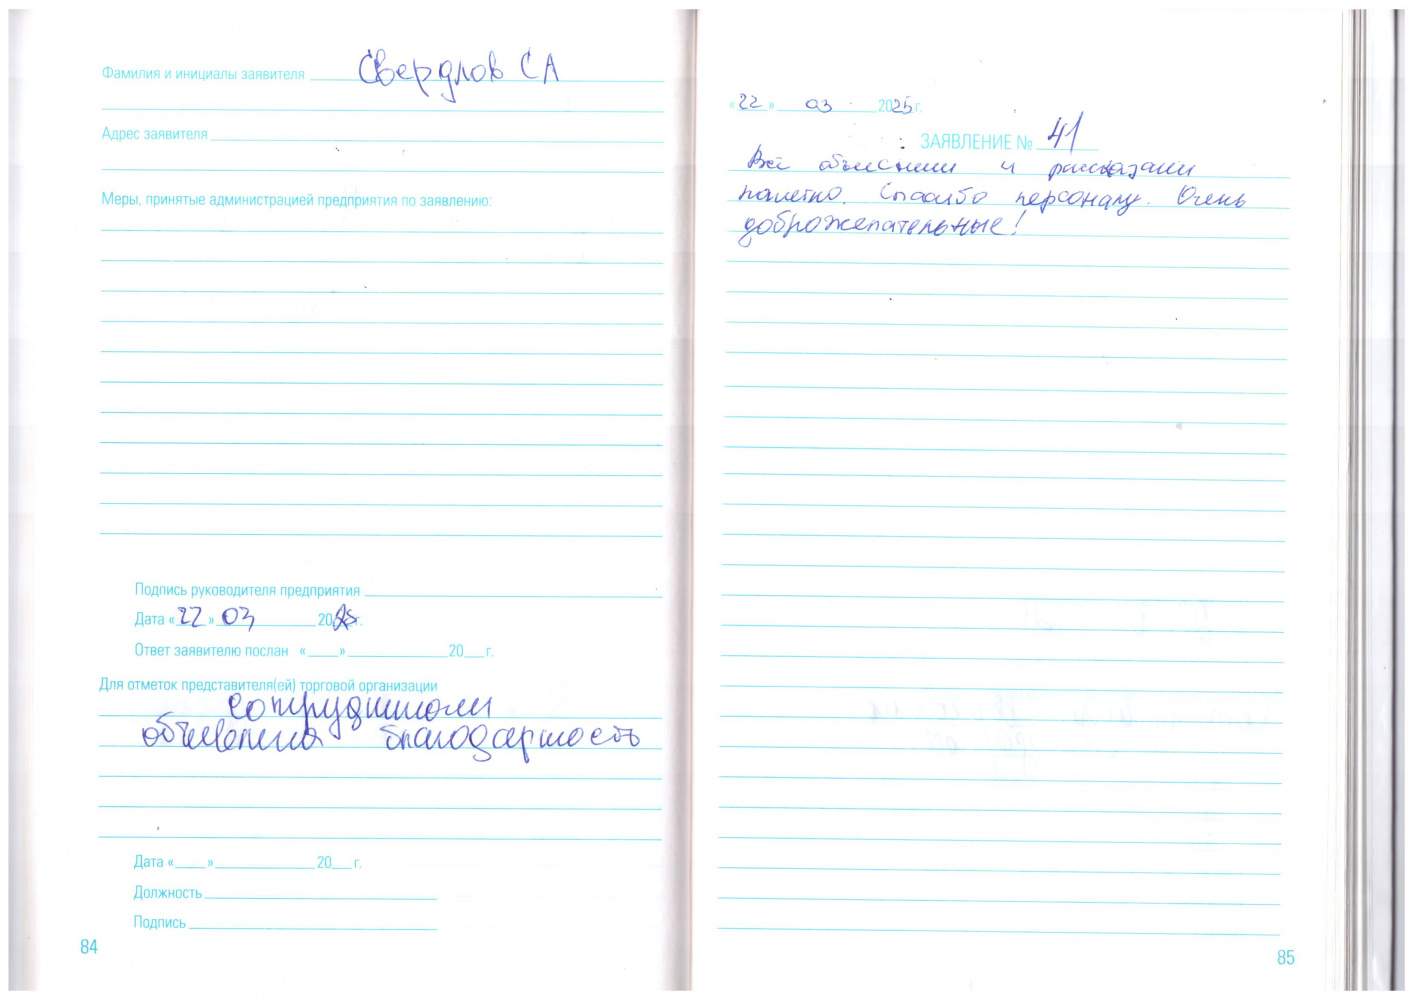 Фамилия и инициалы заявителя Свердлов СА
Адрес заявителя
Меры, принятые администрацией предприятия по заявлению:
Подпись руководителя предприятия
Дата «22» 03 2025г.
Ответ заявителю послан «___» 20__г.
Для отметок представителя(ей) торговой организации
сотрудникам
объявлена благодарность
Дата «___» 20__г.
Должность
Подпись
84
«22» 03 2025г.
ЗАЯВЛЕНИЕ № 41
Всё объяснили и рассказали
понятно. Спасибо персоналу. Очень
доброжелательные!
85